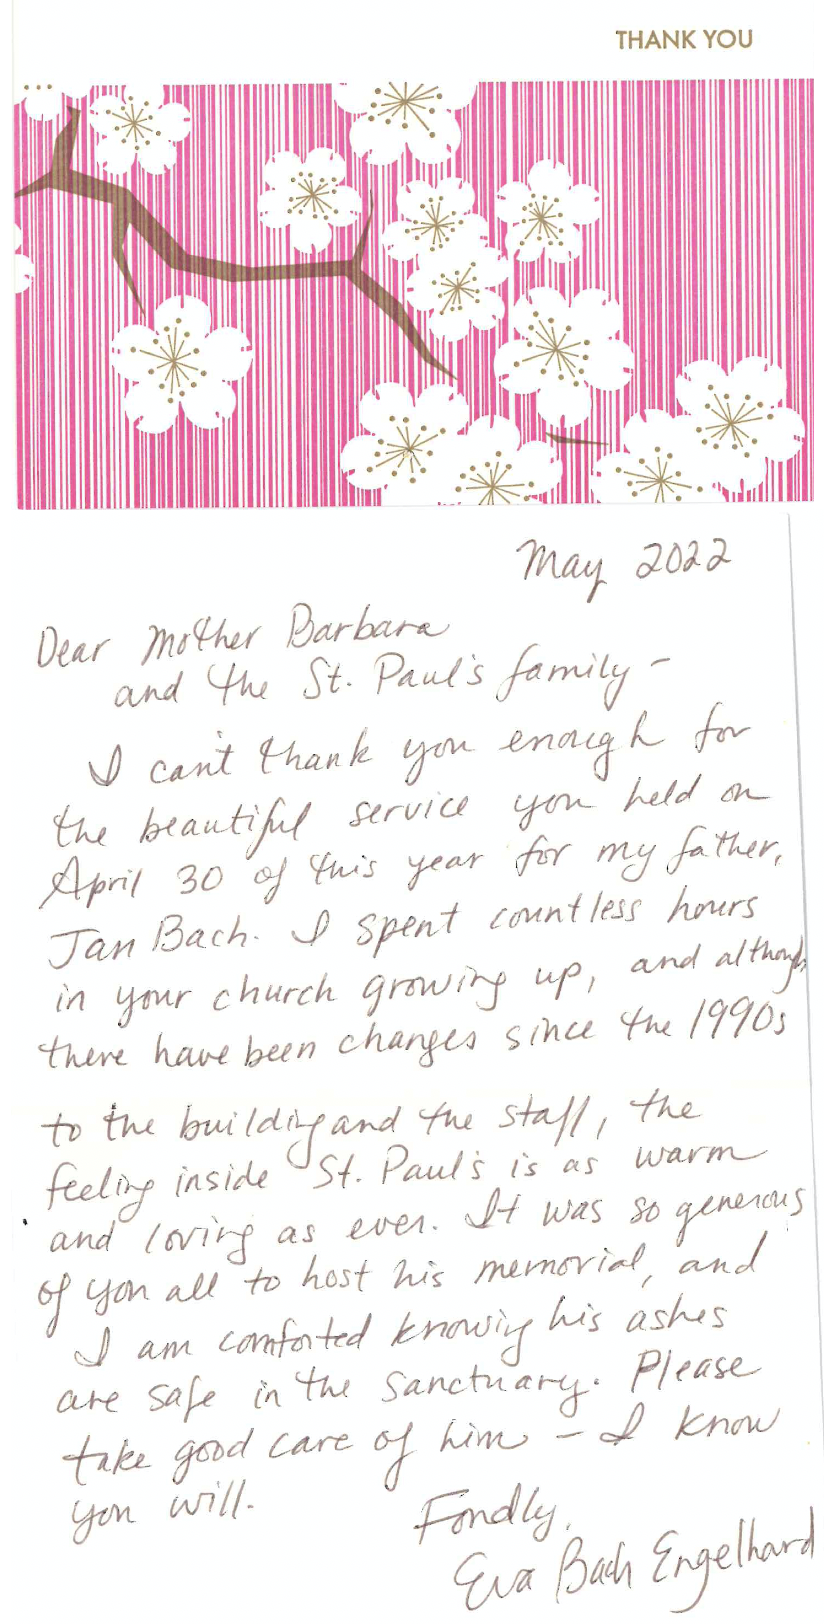 THANK YOU
May 2022
Dear Mother Barbara
and the St. Paul's family -
I can't thank you enough for
the beautiful service you held on
April 30 of this year for my father,
Jan Bach. I spent countless hours
in your church growing up, and although
there have been changes since the 1990s
to the building and the staff, the
feeling inside St. Paul's is as warm
and loving as ever. It was so generous
of you all to host his memorial, and
I am comforted knowing his ashes
are safe in the sanctuary. Please
take good care of him - I know
you will.
Fondly,
Eva Bach Engelhard